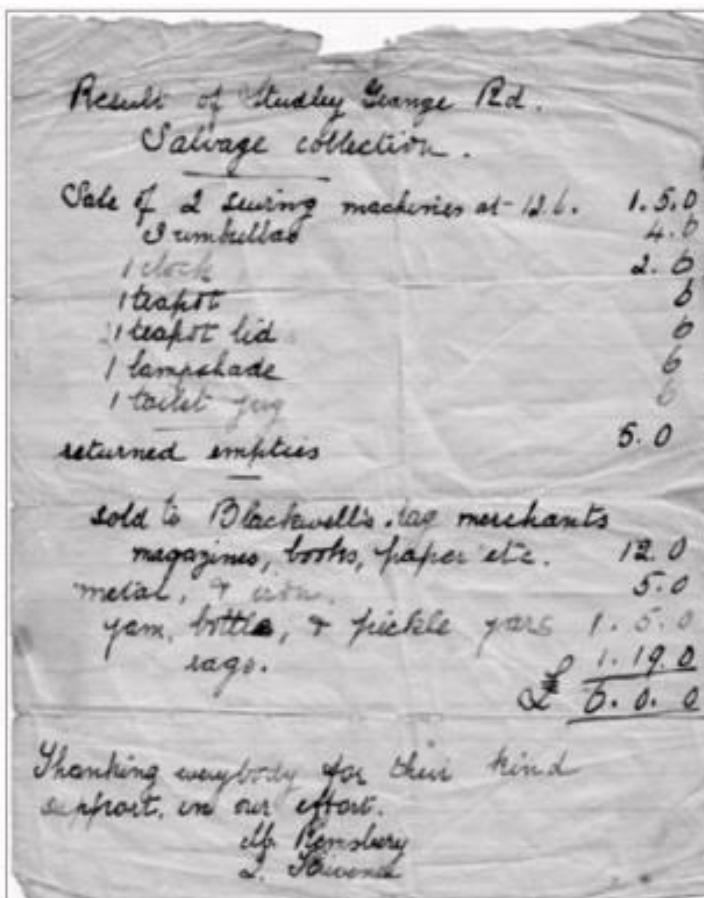 Result of Studley Grange Rd.
Salvage collection.
Sale of 2 sewing machines at 12.6. 1.5.0
3 umbrellas 4.0
1 clock 2.6
1 teapot 6
1 teapot lid 6
1 lampshade 6
1 toilet jug 6
returned empties 5.0
sold to Blackwell's, rag merchants
magazines, books, paper etc. 12.0
metal, & iron, 5.0
jam, bottle, & pickle jars 1.5.0
rags. 1.19.0
£ 6.0.0
Thanking everybody for their kind
support, in our effort.
Remsbery